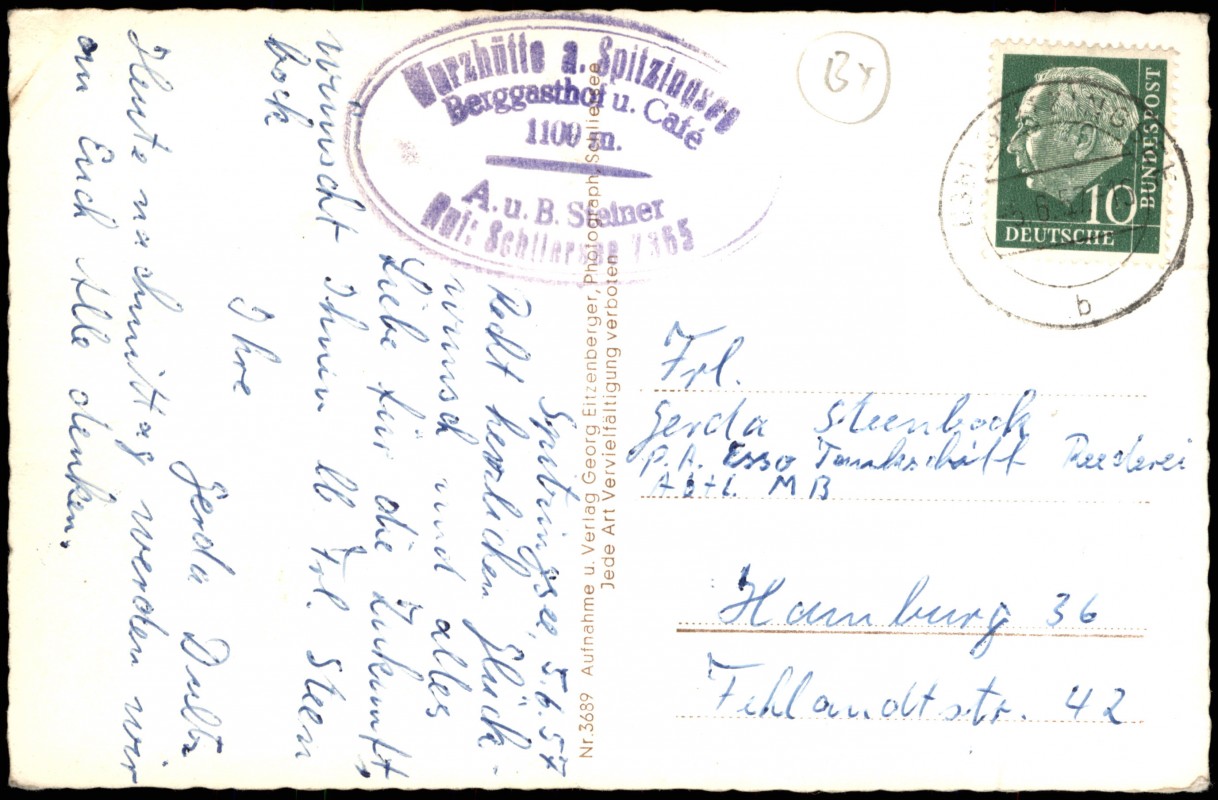 Wurzhütte a. Spitzingsee
Berggasthof u. Café
1100 m.
A. u. B. Steiner
Ruf: Schliersee 7365
By
BUNDESPOST
10
DEUTSCHE
b
Spitzingsee, 5.6.57
Recht herzlichen Glück-
wunsch und alles
Liebe für die Zukunft,
wünscht Ihnen lb Frl. Steen
bock
Ihre
Gerda
Heute nachmittag werden wir
an Euch Alle denken.
Nr. 3689 Aufnahme u. Verlag Georg Eitzenberger, Photograph, Schliersee
Jede Art Vervielfältigung verboten
Frl.
Gerda Steenbock
p. A. Esso Tankschiff Reederei
Abtl. MB
Hamburg 36
Fehlandtstr. 42